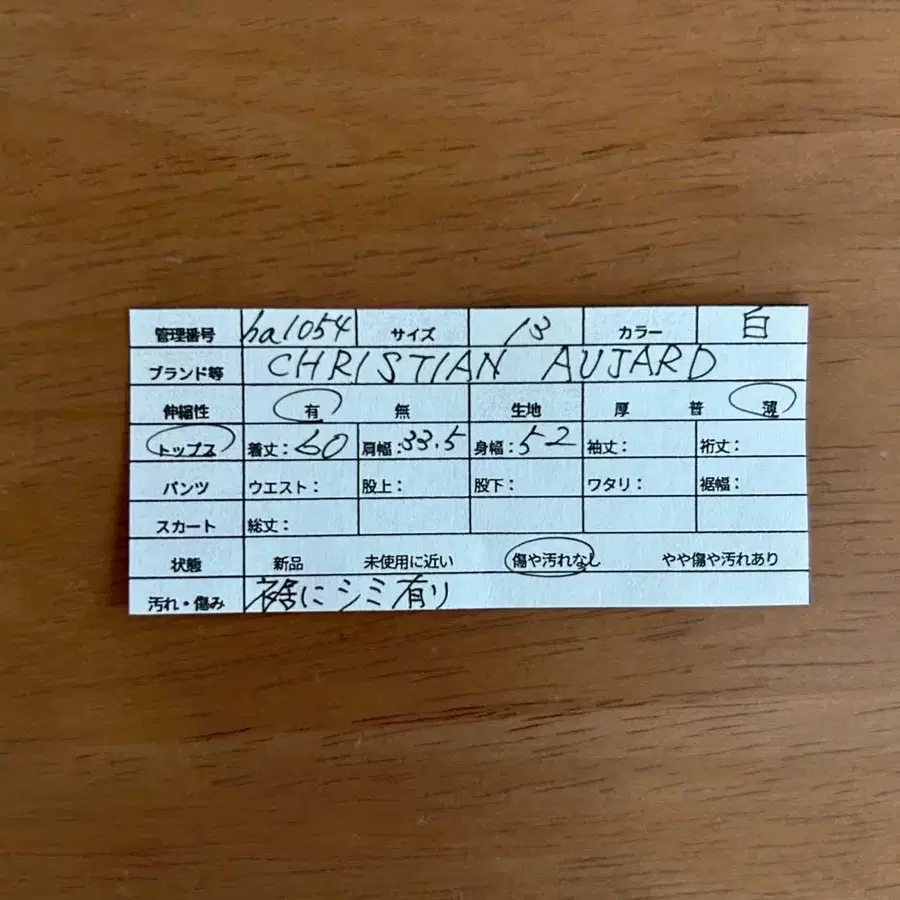 管理番号 ha1054 サイズ 13 カラー 白
ブランド等 CHRISTIAN AUJARD
伸縮性 有 無 生地 厚 普 薄
トップス 着丈:60 肩幅:33.5 身幅:52 袖丈: 裄丈:
パンツ ウエスト: 股上: 股下: ワタリ: 裾幅:
スカート 総丈:
状態 新品 未使用に近い 傷や汚れなし やや傷や汚れあり
汚れ・傷み 裾にシミ有り